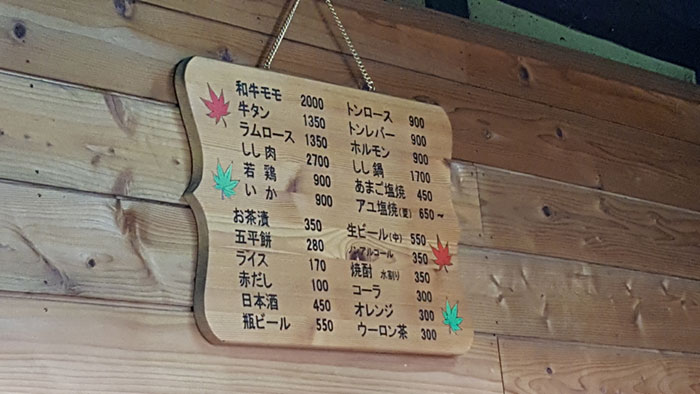 和牛モモ 2000
牛タン 1350
ラムロース 1350
しし肉 2700
若鶏 900
いか 900
お茶漬 350
五平餅 280
ライス 170
赤だし 100
日本酒 450
瓶ビール 550
トンロース 900
トンレバー 900
ホルモン 900
しし鍋 1700
あまご塩焼 450
アユ塩焼(夏) 650~
生ビール(中) 550
ノンアルコール 350
焼酎 水割り 350
コーラ 300
オレンジ 300
ウーロン茶 300